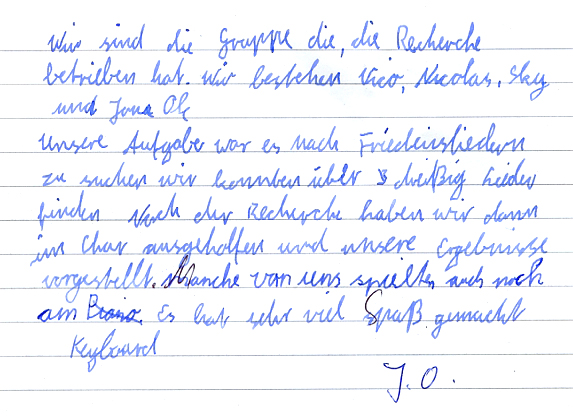 Wir sind die Gruppe die, die Recherche
betrieben hat. Wir bestehen Vico, Nicolas, Sky
und Jona Ok
Unsere Aufgabe war es nach Friedensliedern
zu suchen wir konnten über dreißig Lieder
finden Nach der Recherche haben wir dann
im Chor ausgeholfen und unsere Ergebnisse
vorgestellt. Manche von uns spielten auch noch
am Es hat sehr viel Spaß gemacht
Keyboard
J.O.